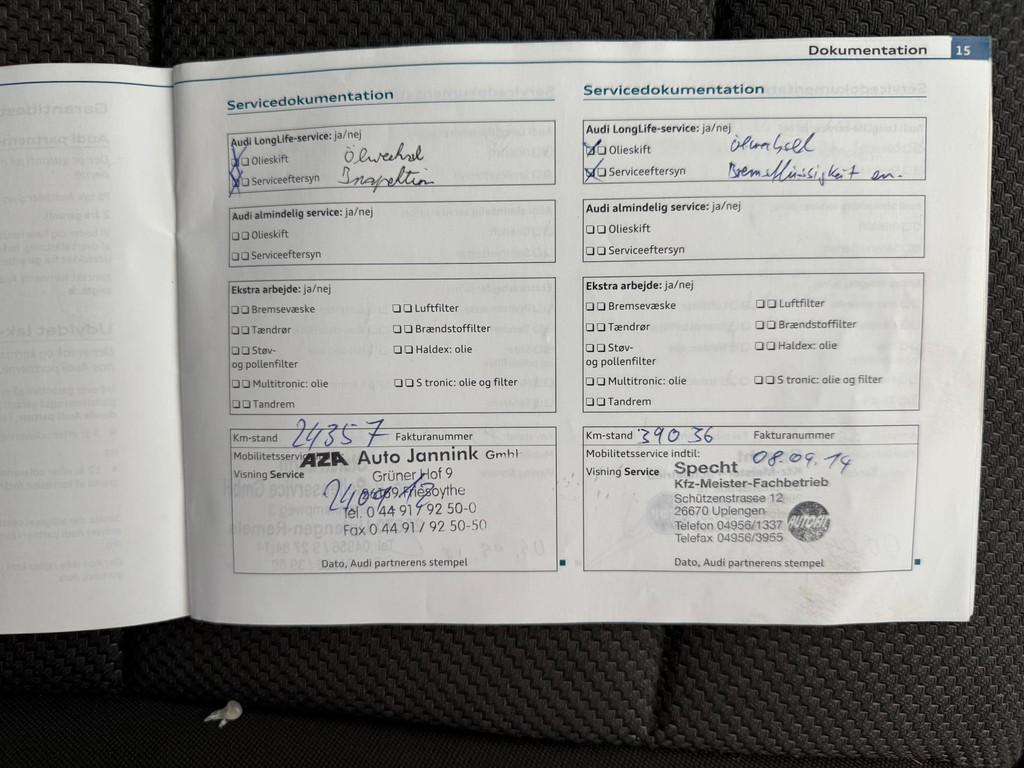 Dokumentation 15
Servicedokumentation
Audi LongLife-service: ja/nej
Olieskift Ölwechsel
Serviceeftersyn Inspektion
Audi almindelig service: ja/nej
Olieskift
Serviceeftersyn
Ekstra arbejde: ja/nej
Bremsevæske Luftfilter
Tændrør Brændstoffilter
Støv- Haldex: olie
og pollenfilter
Multitronic: olie S tronic: olie og filter
Tandrem
Km-stand 24357 Fakturanummer
Mobilitetsservic
AZA Auto Jannink GmbH
Visning Service
Grüner Hof 9
Friesoythe
Tel. 0 44 91 / 92 50-0
Fax 0 44 91 / 92 50-50
Dato, Audi partnerens stempel
Servicedokumentation
Audi LongLife-service: ja/nej
Olieskift Ölwechsel
Serviceeftersyn Bremsflüssigkeit en.
Audi almindelig service: ja/nej
Olieskift
Serviceeftersyn
Ekstra arbejde: ja/nej
Bremsevæske Luftfilter
Tændrør Brændstoffilter
Støv- Haldex: olie
og pollenfilter
Multitronic: olie S tronic: olie og filter
Tandrem
Km-stand 39036 Fakturanummer
Mobilitetsservice indtil: 08.09.14
Visning Service
Specht
Kfz-Meister-Fachbetrieb
Schützenstrasse 12
26670 Uplengen
Telefon 04956/1337
Telefax 04956/3955
AUTOFIT
Dato, Audi partnerens stempel